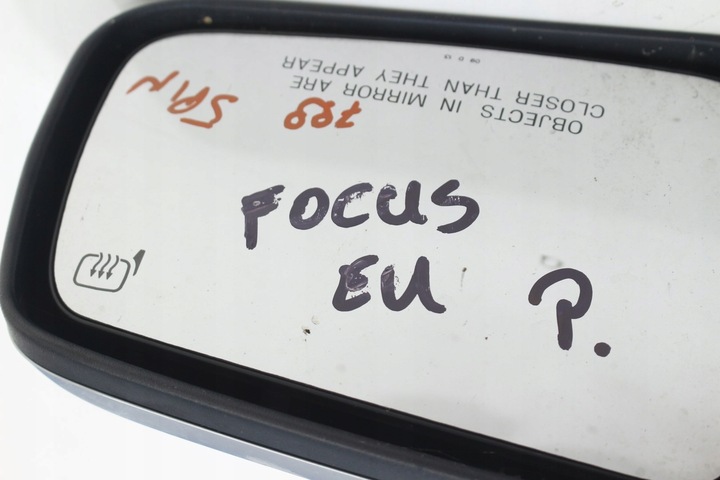 FOCUS
EU P.
OBJECTS IN MIRROR ARE
CLOSER THAN THEY APPEAR